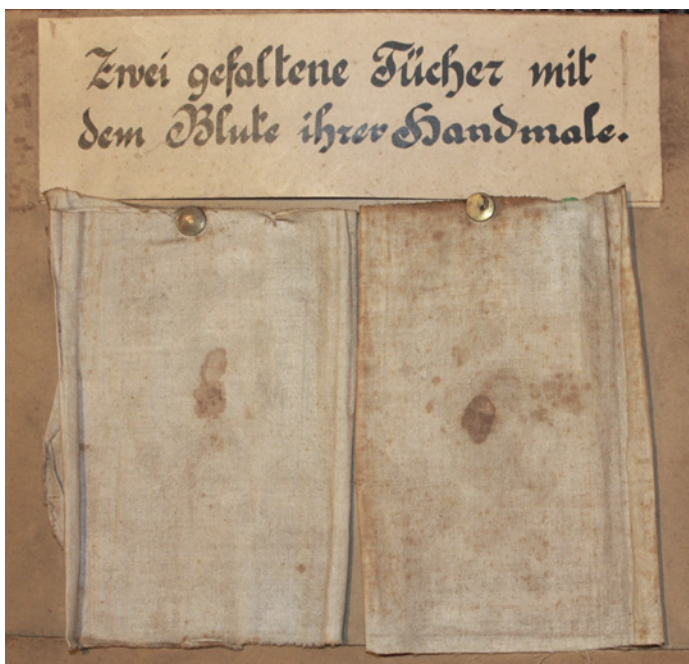 Zwei gefaltene Tücher mit
dem Blute ihrer Handmale.